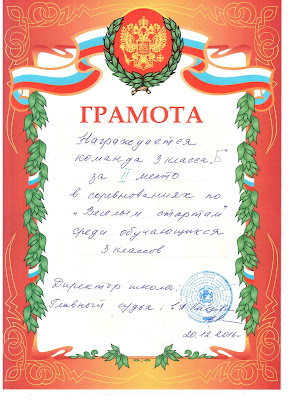 ГРАМОТА
Награждается
команда 3 класса „Б"
за II место
в соревнованиях по
„Весёлым стартам"
среди обучающихся
3 классов
Директор школы:
Главный судья:
20.12.2016г.